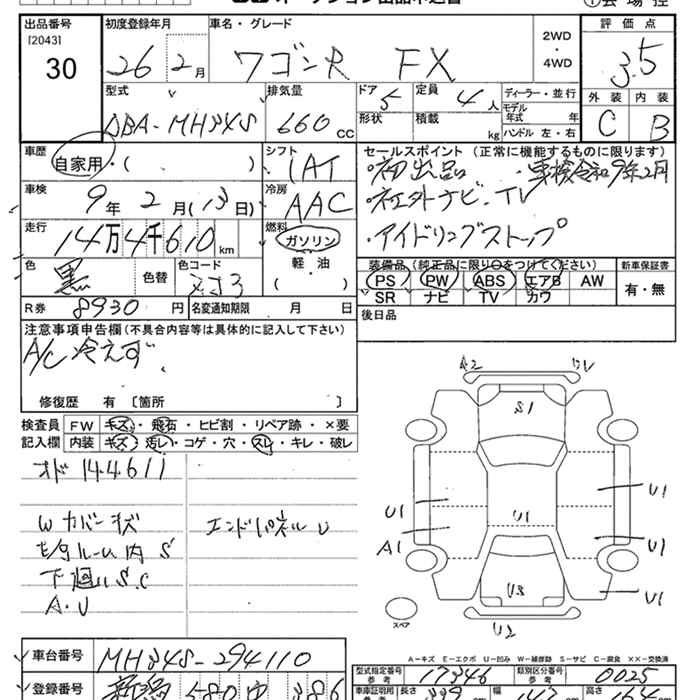 出品番号
[2043]
30
初度登録年月
26年 2月
車名・グレード
ワゴンR FX
2WD
・
4WD
評価点
3.5
外装 内装
C B
型式
DBA-MH34S
排気量
660 CC
ドア
5
形状
定員
4人
積載
kg
ディーラー・並行
モデル
年式 年
ハンドル 左・右
車歴
自家用・( )
シフト
IAT
車検
9年 2月(13日)
冷房
AAC
走行
14万4千610km
燃料
ガソリン
軽・油
( )
色
黒
色替
色コード
ZJ3
R券 8930 円
名変通知期限 月 日
セールスポイント (正常に機能するものに限ります)
・初出品 ・車検令和9年2月
・社外ナビ・TV
・アイドリングストップ
装備品(純正品に限り〇をつけてください)
PS PW ABS エアB AW
SR ナビ TV カワ
新車保証書
有・無
後日品
注意事項申告欄(不具合内容等は具体的に記入して下さい)
A/C 冷えず
修復歴 有 〔箇所 〕
検査員
記入欄
FW キズ・飛石・ヒビ割・リペア跡・×要
内装 キズ・汚レ・コゲ・穴・スレ・キレ・破レ
オド 144611
Wカバーキズ エンドパネル U
下廻りS.C
A・U
A2
S1
U1
U1
U1
A1
U1
U1
U3
U2
スペア
A-キズ E-エクボ U-凹み W-補修跡 S-サビ C-腐食 ××-交換済
車台番号 MH34S-294110
型式指定番号
参考
17346
類別区分番号
参考
0025
登録番号 新潟 580
車庫証明用
参考
長さ 339 幅 147 高さ